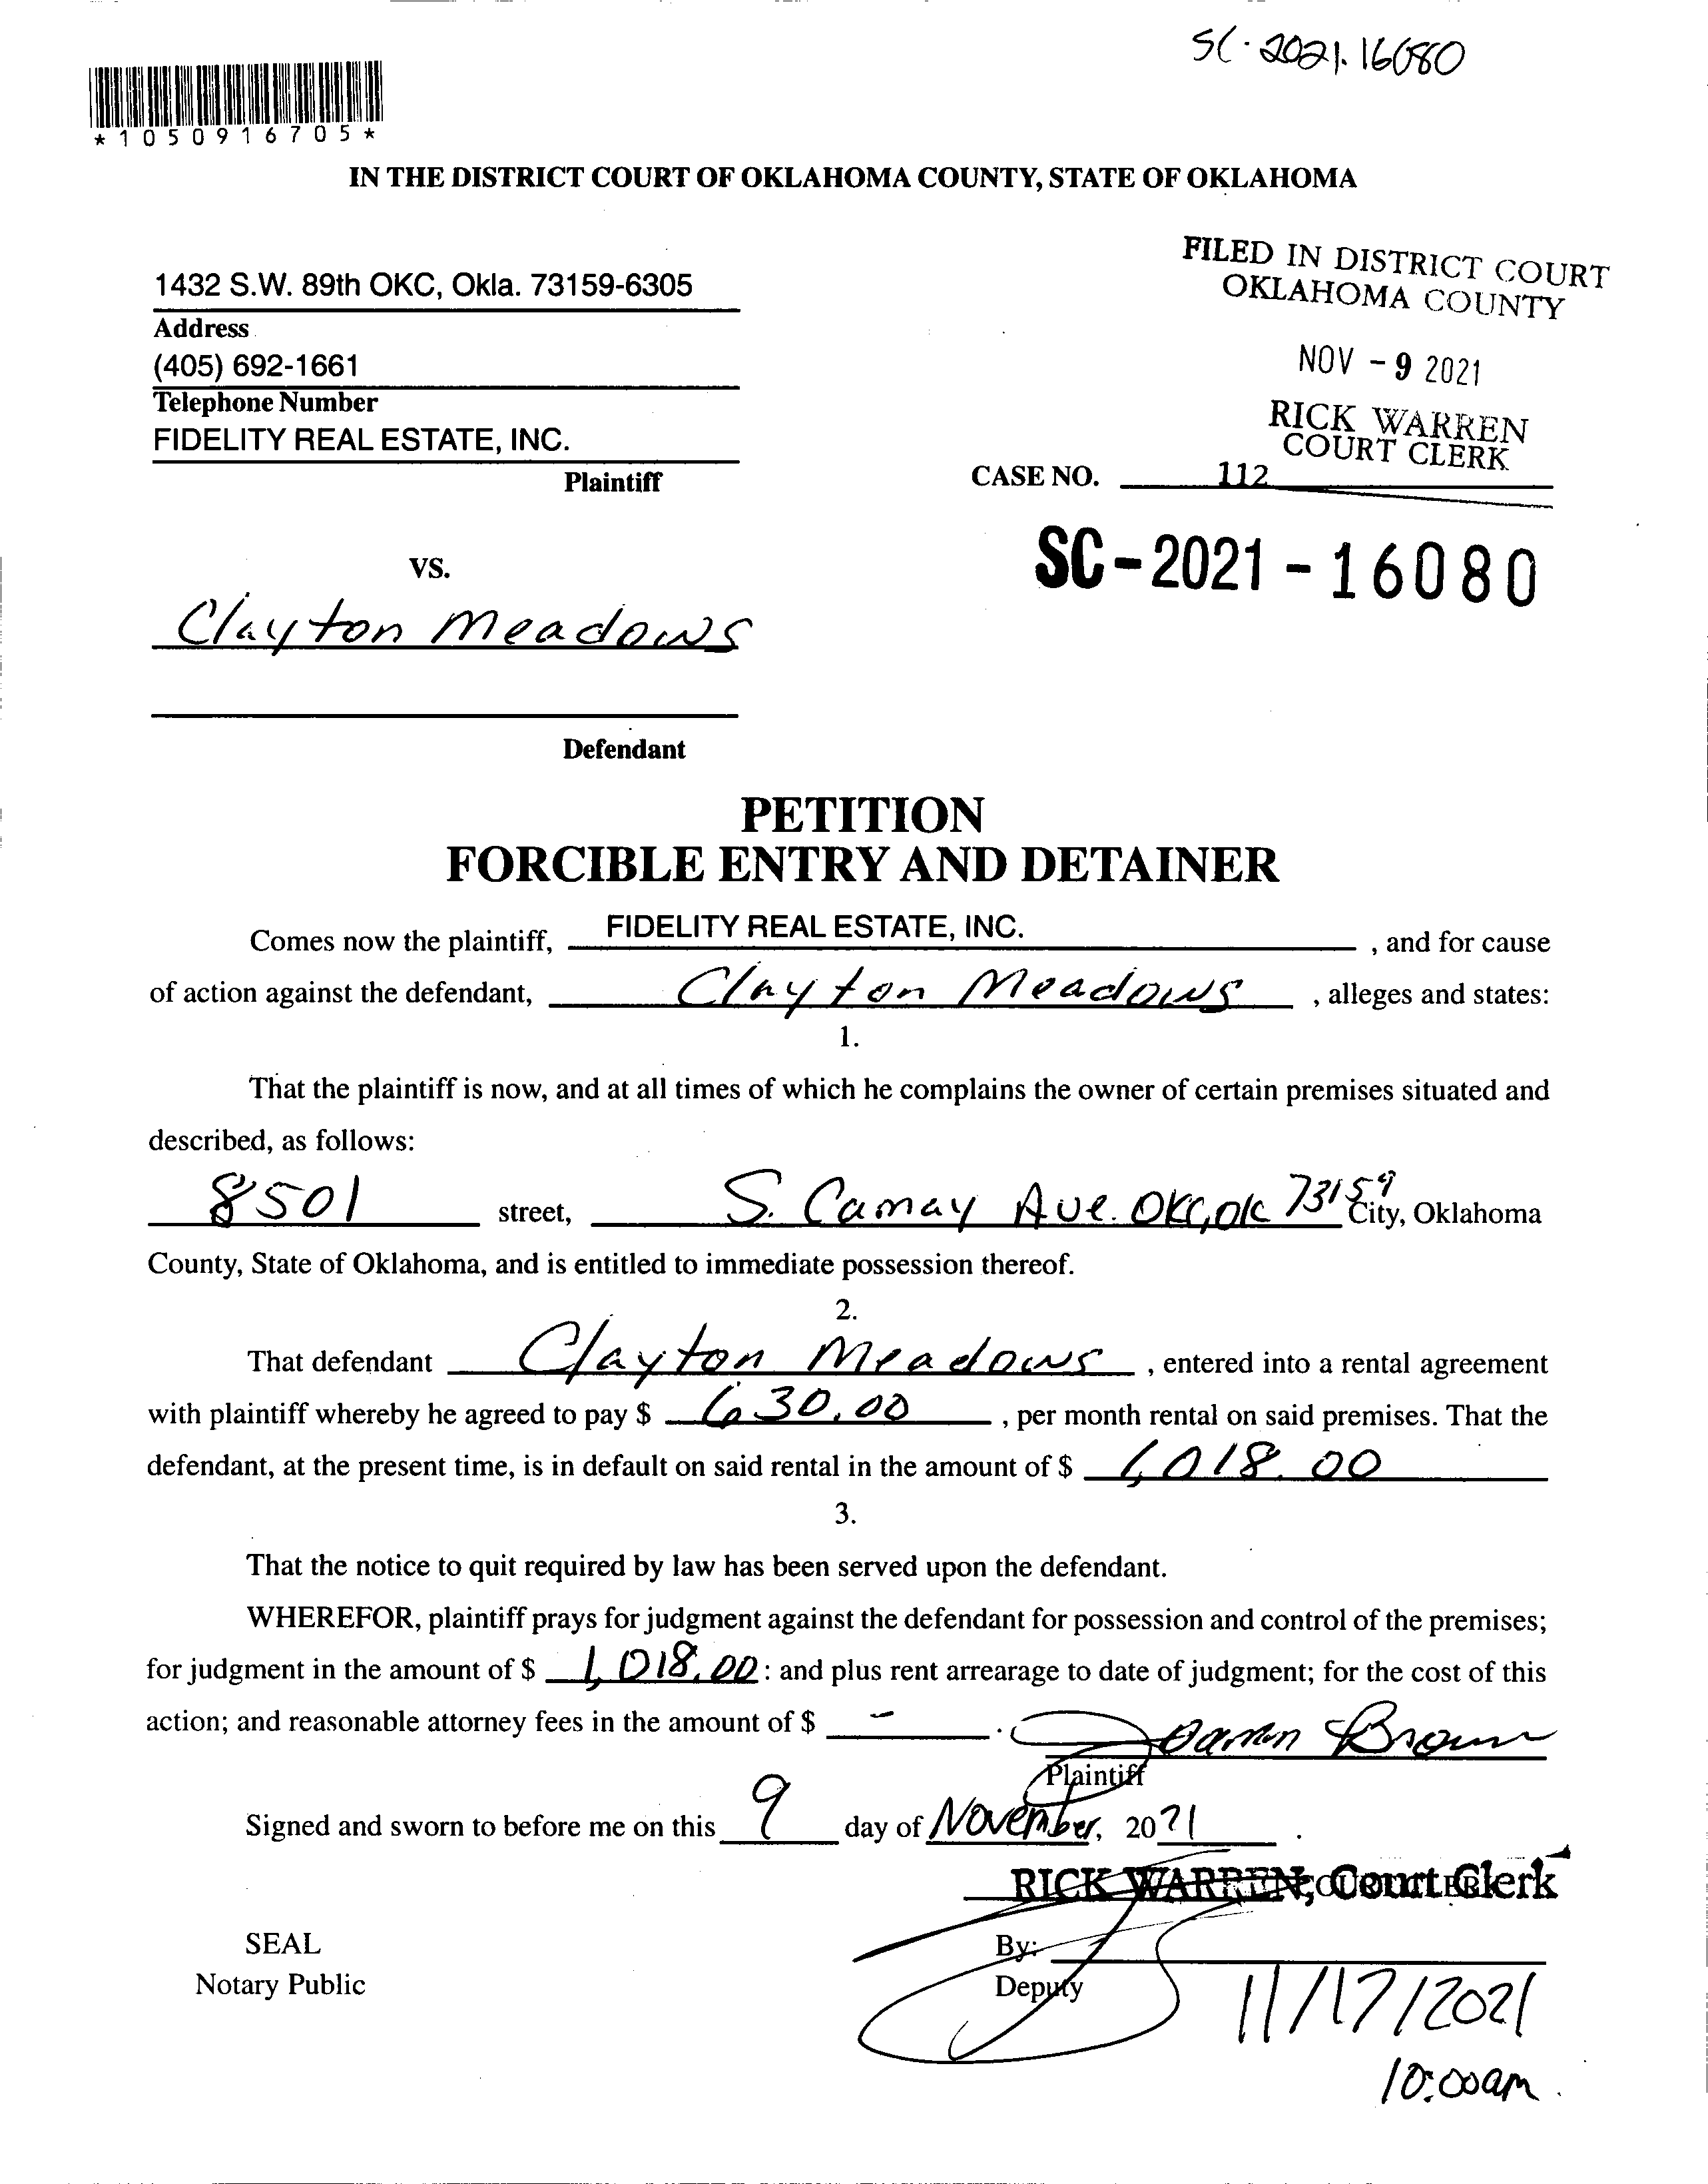 SC-2021-16080
*1050916705*
IN THE DISTRICT COURT OF OKLAHOMA COUNTY, STATE OF OKLAHOMA
FILED IN DISTRICT COURT
OKLAHOMA COUNTY
NOV - 9 2021
RICK WARREN
COURT CLERK
1432 S.W. 89th OKC, Okla. 73159-6305
Address
(405) 692-1661
Telephone Number
FIDELITY REAL ESTATE, INC.
Plaintiff
CASE NO. 112
SC-2021-16080
VS.
Clayton Meadows
Defendant
PETITION
FORCIBLE ENTRY AND DETAINER
Comes now the plaintiff, FIDELITY REAL ESTATE, INC. , and for cause
of action against the defendant, Clayton Meadows , alleges and states:
1.
That the plaintiff is now, and at all times of which he complains the owner of certain premises situated and
described, as follows:
8501 street, S. Camay Ave. OKC, OK 73159 City, Oklahoma
County, State of Oklahoma, and is entitled to immediate possession thereof.
2.
That defendant Clayton Meadows , entered into a rental agreement
with plaintiff whereby he agreed to pay $ 630.00 , per month rental on said premises. That the
defendant, at the present time, is in default on said rental in the amount of $ 1,018.00
3.
That the notice to quit required by law has been served upon the defendant.
WHEREFOR, plaintiff prays for judgment against the defendant for possession and control of the premises;
for judgment in the amount of $ 1,018.00 : and plus rent arrearage to date of judgment; for the cost of this
action; and reasonable attorney fees in the amount of $ - .
Brown
Plaintiff
Signed and sworn to before me on this 9 day of November, 2021 .
RICK WARREN, Court Clerk
SEAL
Notary Public
By:
Deputy
11/17/2021
10:00am